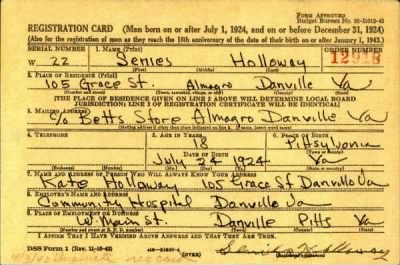 FORM APPROVED
Budget Bureau No. 33-R013-42
REGISTRATION CARD (Men born on or after July 1, 1924, and on or before December 31, 1924)
(Also for the registration of men as they reach the 18th anniversary of the date of their birth on or after January 1, 1943.)
SERIAL NUMBER 1. NAME (Print) ORDER NUMBER
W 22 Holloway 12918
(First) (Middle) (Last)
2. PLACE OF RESIDENCE (Print)
105 Grace St. Almagro Danville Va
(Number and street) (Town, township, village, or city) (County) (State)
[THE PLACE OF RESIDENCE GIVEN ON LINE 2 ABOVE WILL DETERMINE LOCAL BOARD
JURISDICTION; LINE 2 OF REGISTRATION CERTIFICATE WILL BE IDENTICAL]
3. MAILING ADDRESS
C/o Betts Store Almagro Danville Va
[Mailing address if other than place indicated on line 2. If same, insert word same]
4. TELEPHONE 5. AGE IN YEARS 6. PLACE OF BIRTH
18 Pittsylvania
DATE OF BIRTH (Town or county)
July 24 1924 Va
(Exchange) (Number) (Mo.) (Day) (Yr.) (State or country)
7. NAME AND ADDRESS OF PERSON WHO WILL ALWAYS KNOW YOUR ADDRESS
Kate Holloway 105 Grace St Danville Va
8. EMPLOYER'S NAME AND ADDRESS
Community Hospital Danville Va
9. PLACE OF EMPLOYMENT OR BUSINESS
W. Main St. Danville Pitts Va
(Number and street or R. F. D. number) (Town) (County) (State)
I AFFIRM THAT I HAVE VERIFIED ABOVE ANSWERS AND THAT THEY ARE TRUE.
DSS Form 1 (Rev. 11-16-42) (OVER)
Holloway